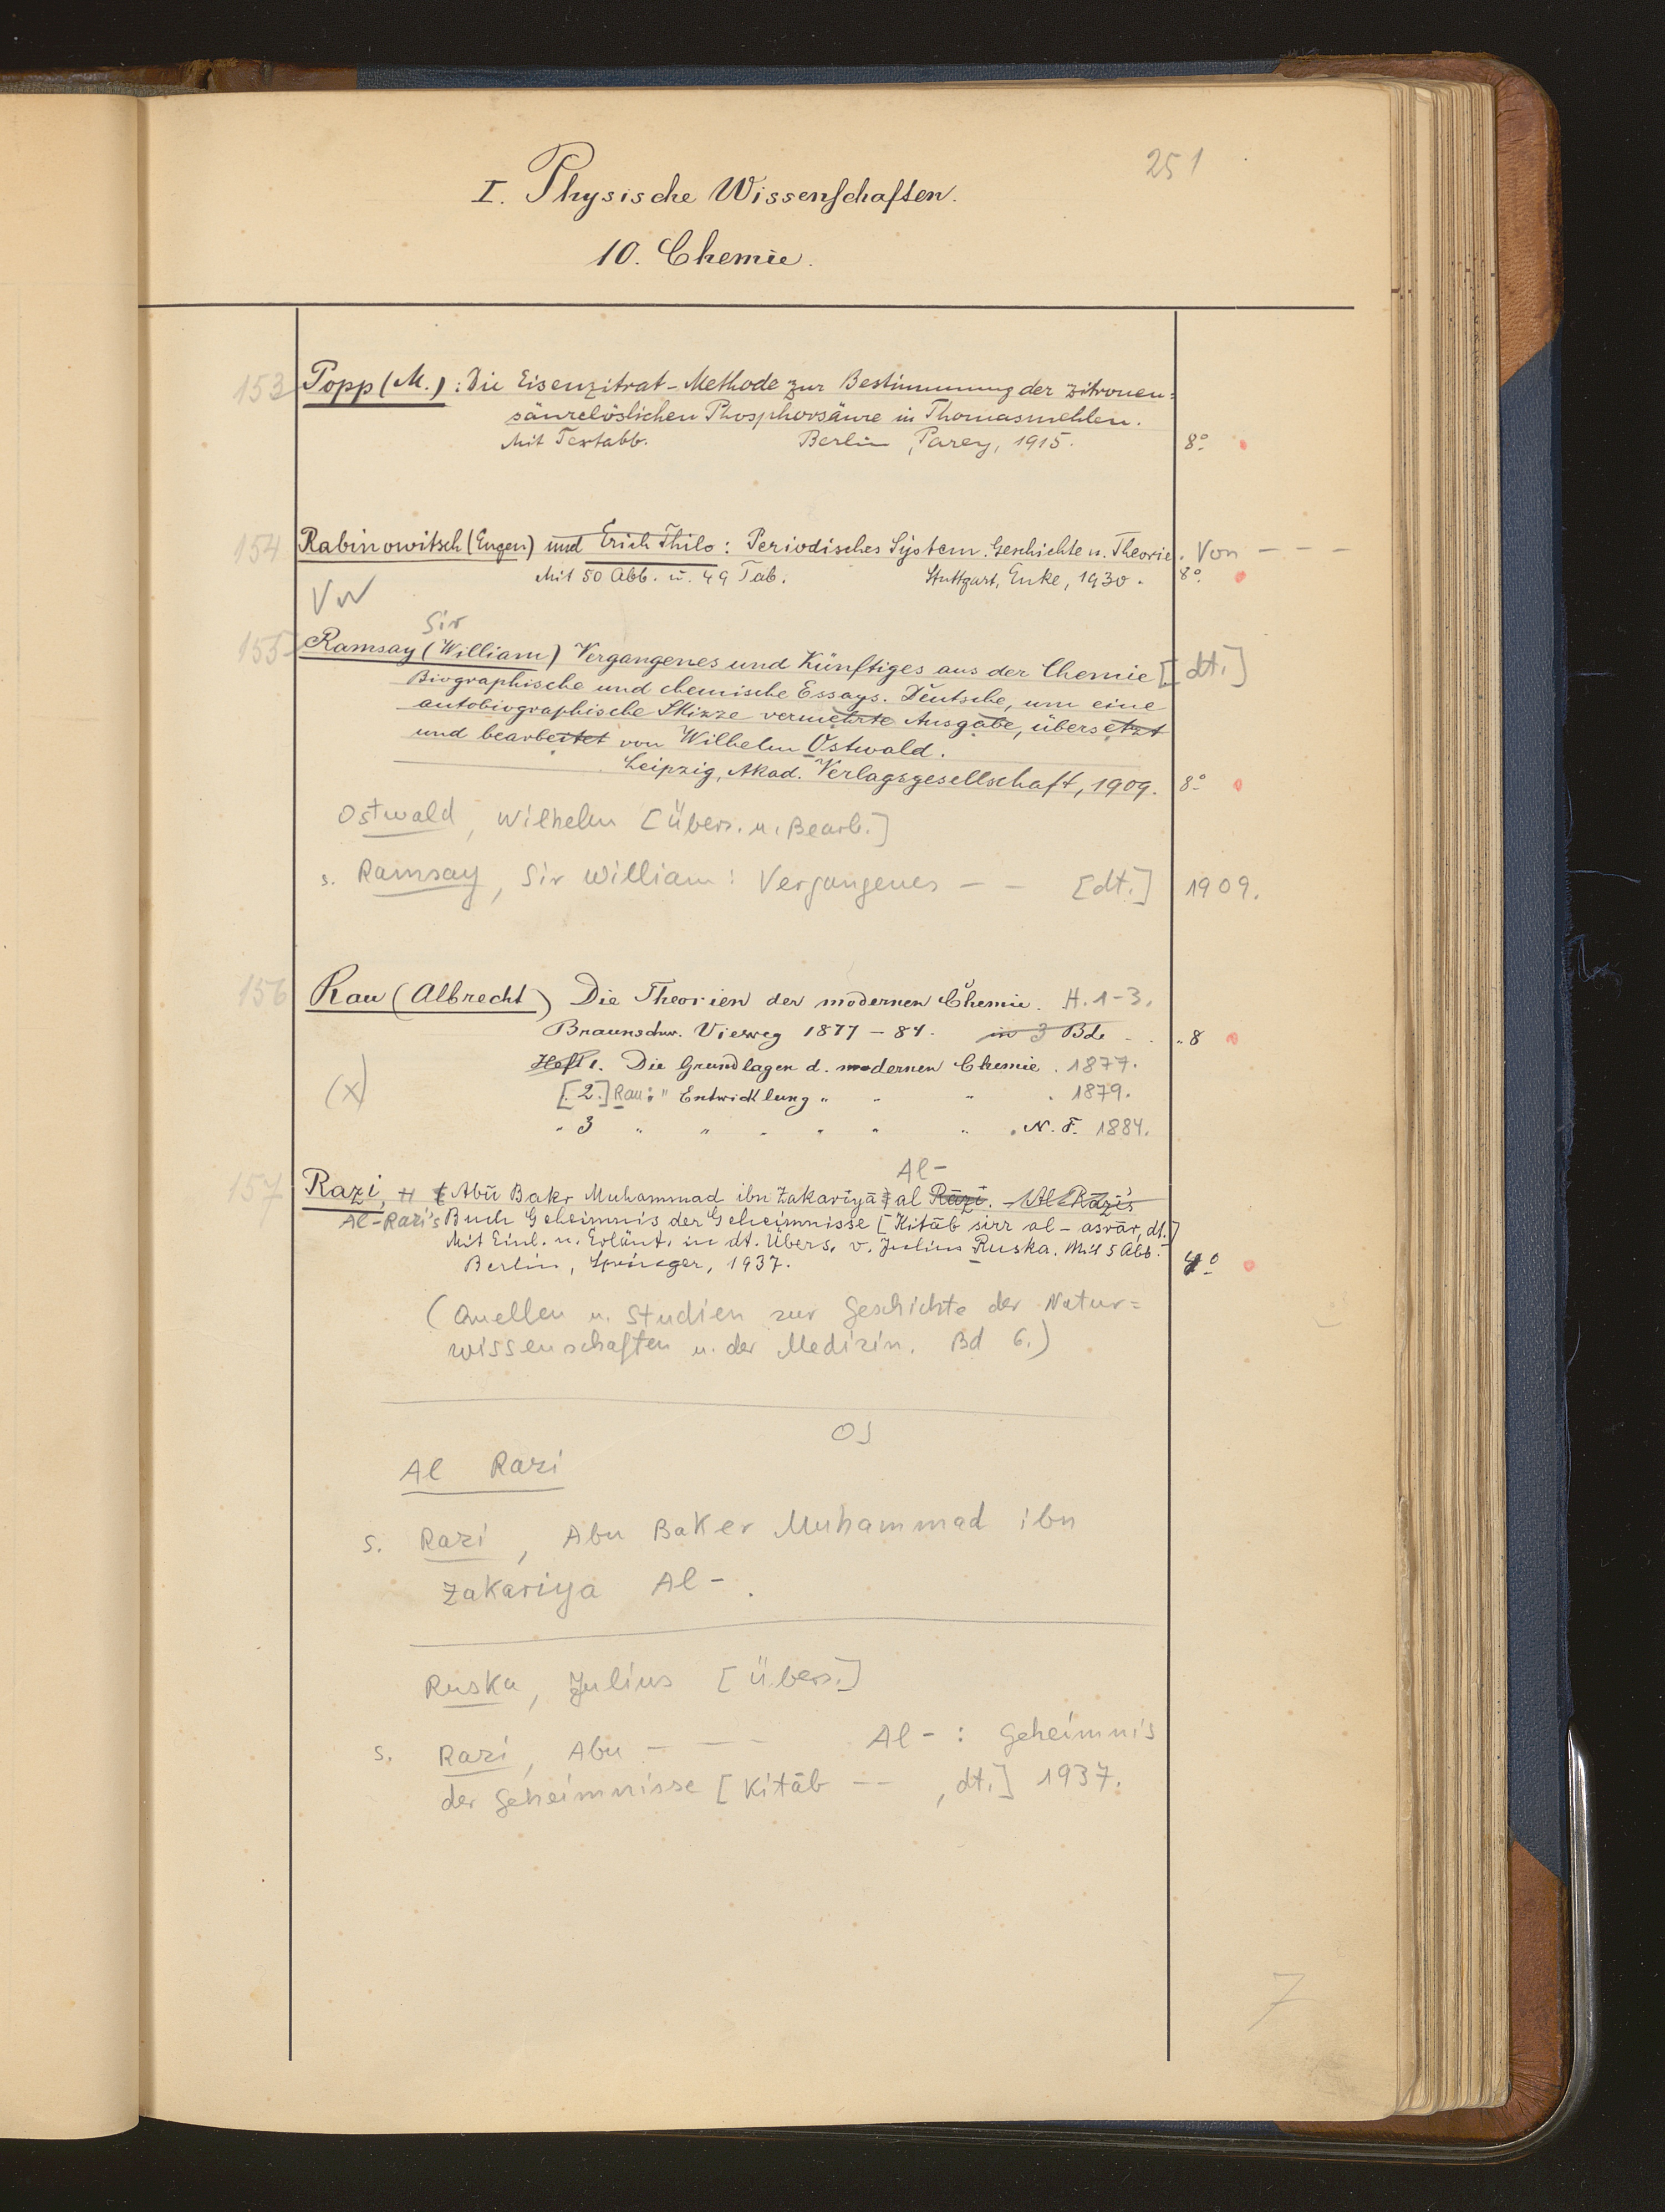 251
I. Physische Wissenschaften.
10. Chemie.
153 Popp (M.): Die Eisenzitrat-Methode zur Bestimmung der zitronen=
säurelöslichen Phosphorsäure in Thomasmehlen.
Mit Textabb. Berlin, Parey, 1915. 8°
154 Rabinowitsch (Eugen) und Erich Thilo: Periodisches System. Geschichte u. Theorie. Von - - -
Mit 50 Abb. u. 49 Tab. Stuttgart, Enke, 1930. 8°
VW
Sir
155 Ramsay (William) Vergangenes und Künftiges aus der Chemie [dt.]
Biographische und chemische Essays. Deutsche, um eine
autobiographische Skizze vermehrte Ausgabe, übersetzt
und bearbeitet von Wilhelm Ostwald.
Leipzig, Akad. Verlagsgesellschaft, 1909. 8°
Ostwald, Wilhelm [Übers. u. Bearb.]
s. Ramsay, Sir William: Vergangenes - - [dt.] 1909.
156 Rau (Albrecht) Die Theorien der modernen Chemie. H. 1-3.
Braunschw. Vieweg 1877-84. in 3 Bde. „ 8
Heft 1. Die Grundlagen d. modernen Chemie. 1877.
(x) [2.] Rau: " Entwicklung " " " . 1879.
" 3 " " " " " " . N. F. 1884.
Al-
157 Razi, (Abū Bakr Muhammad ibn Zakarīyā) al Rāzī. Al-Rāzī's
Al-Razi's Buch Geheimnis der Geheimnisse [Kitāb sirr al-asrār, dt.]
Mit Einl. u. Erläut. in dt. Übers. v. Julius Ruska. Mit 5 Abb.
Berlin, Springer, 1937. 4°
(Quellen u. Studien zur Geschichte der Natur=
wissenschaften u. der Medizin. Bd 6.)
OJ
Al Razi
s. Razi, Abu Baker Muhammad ibn
Zakariya Al-.
Ruska, Julius [Übers.]
s. Razi, Abu - - - Al-: Geheimnis
der Geheimnisse [Kitāb - - , dt.] 1937.
7